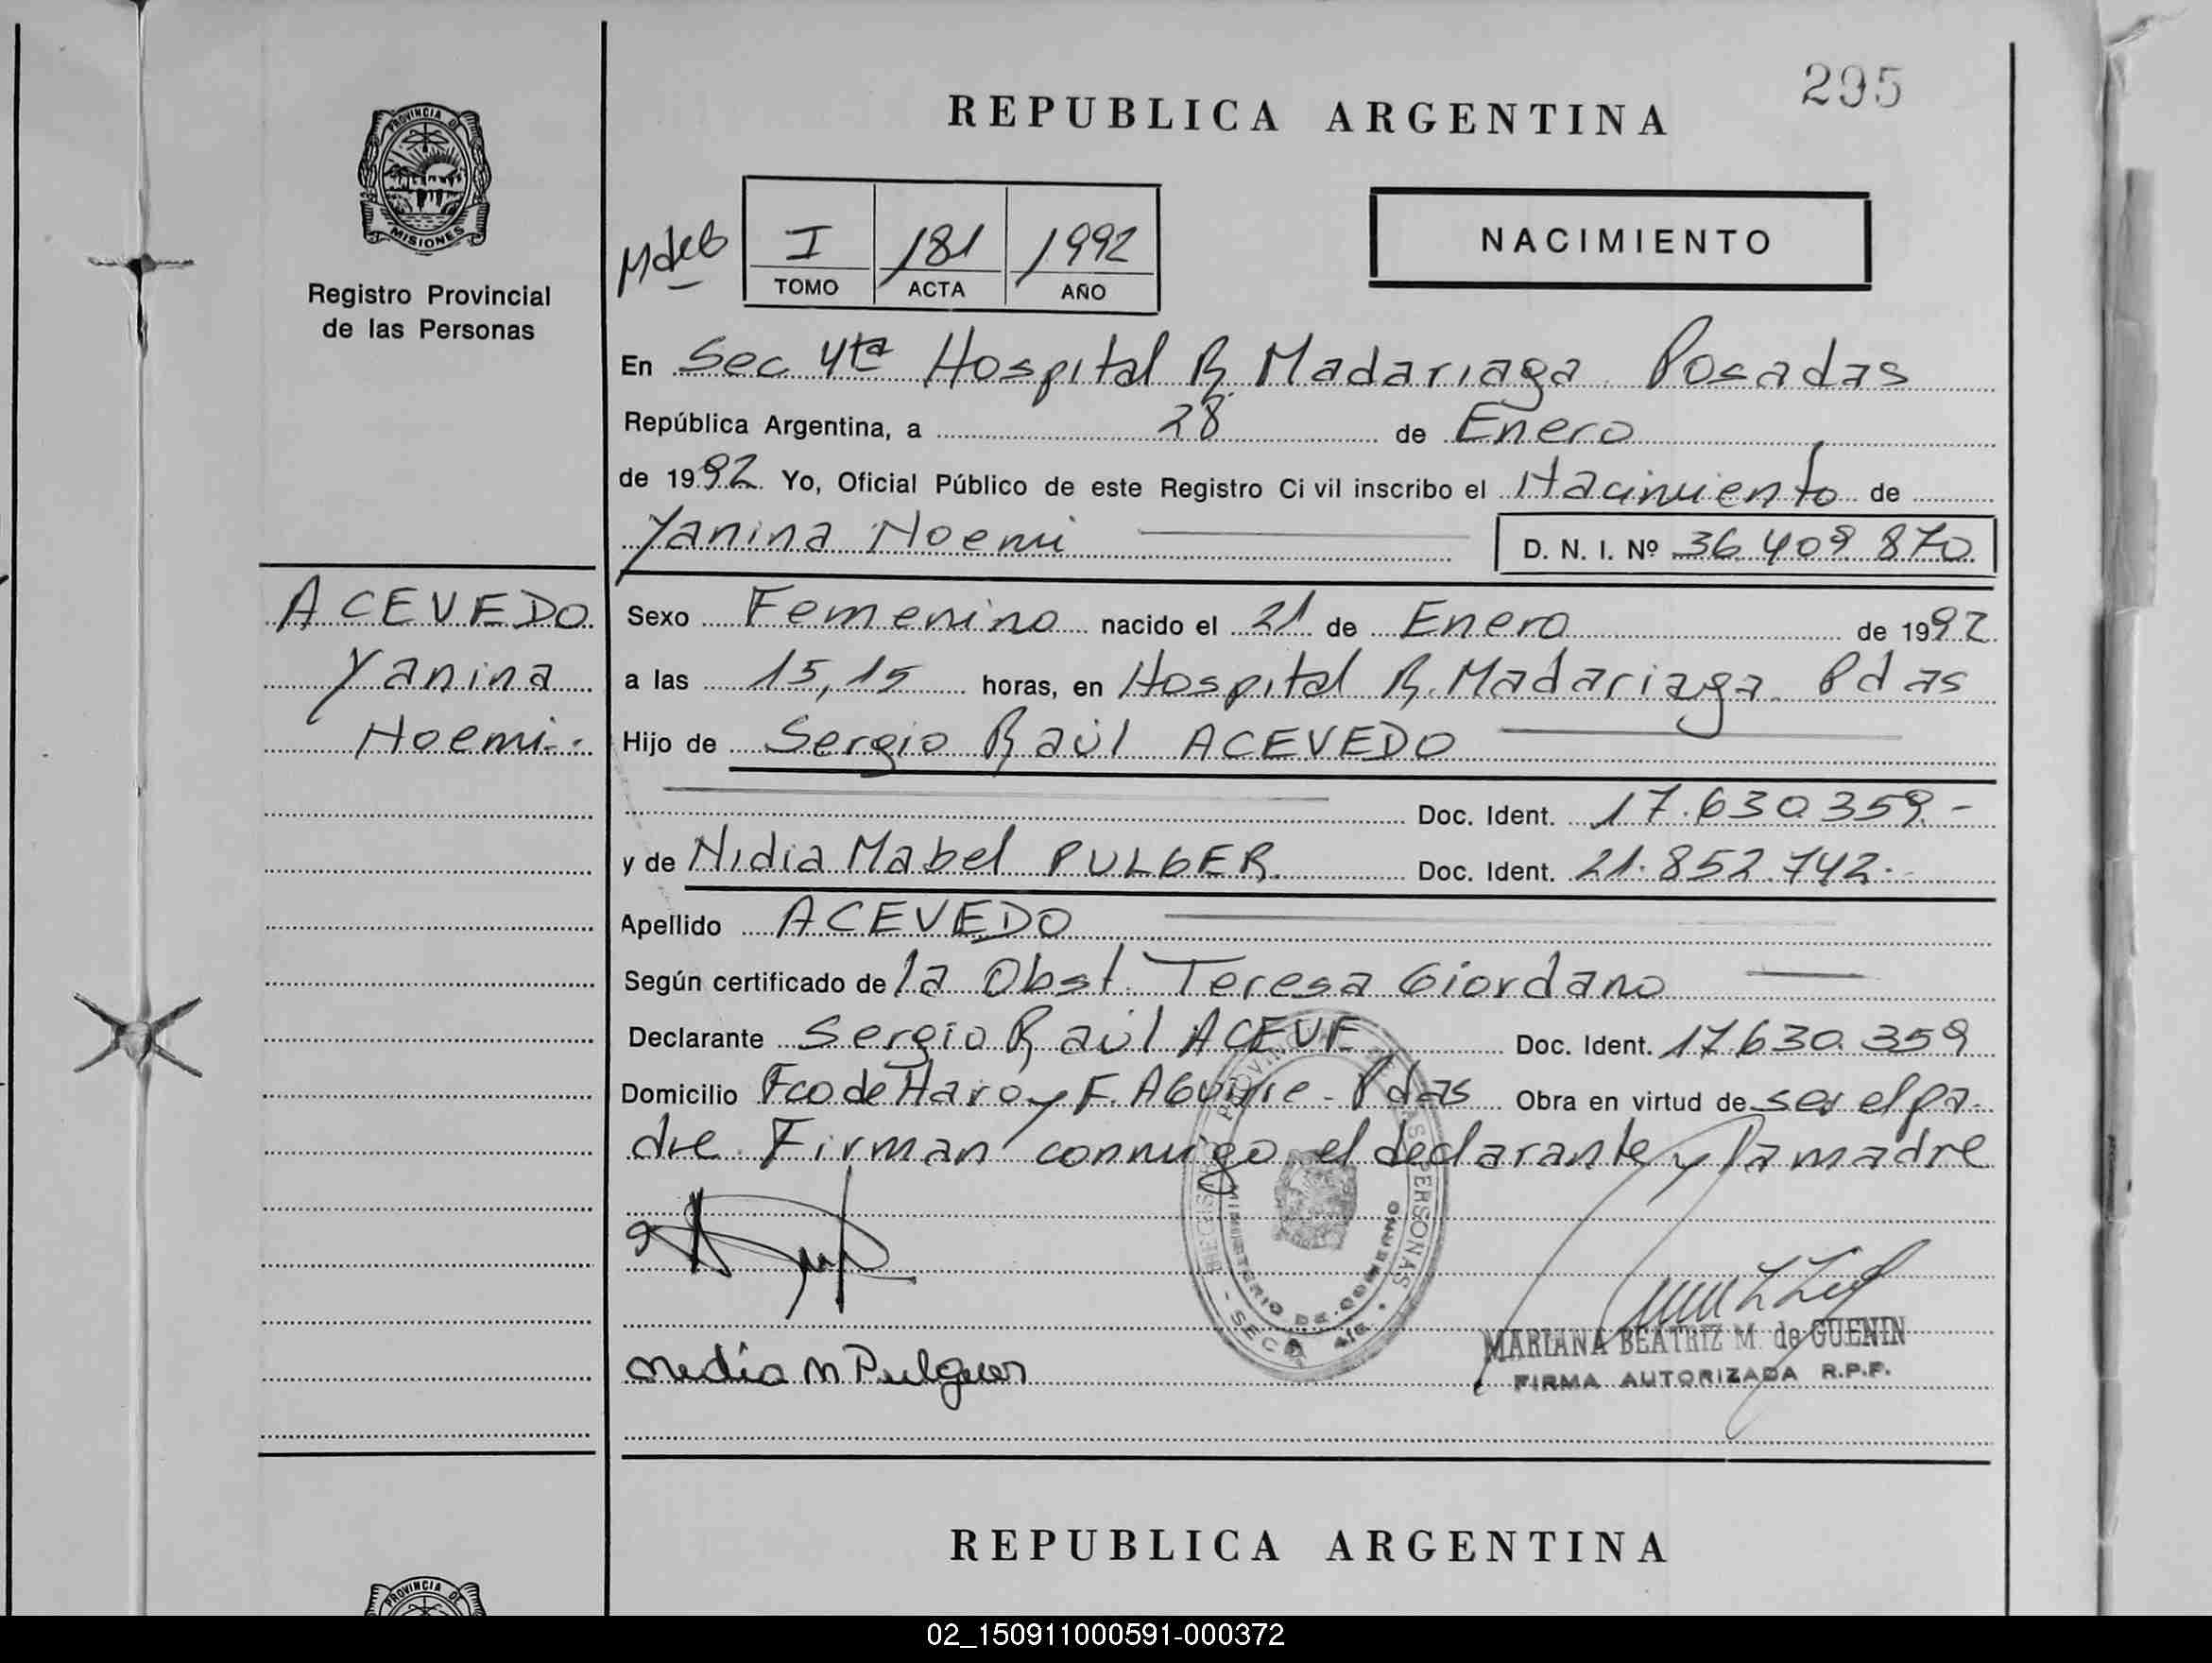 295
REPUBLICA ARGENTINA
PROVINCIA DE
MISIONES
Registro Provincial
de las Personas
I 181 1992
TOMO ACTA AÑO
NACIMIENTO
En Sec 4ta Hospital R. Madariaga Posadas
República Argentina, a 28 de Enero
de 1992. Yo, Oficial Público de este Registro Civil inscribo el Nacimiento de
Yanina Noemi D. N. I. Nº 36.409.870
ACEVEDO
Yanina
Noemi.
Sexo Femenino nacido el 21 de Enero de 1992
a las 15,15 horas, en Hospital R. Madariaga Pdas
Hijo de Sergio Raúl ACEVEDO
Doc. Ident. 17.630.359.-
y de Nidia Mabel PULGER. Doc. Ident. 21.852.742.-
Apellido ACEVEDO
Según certificado de la Obst. Teresa Giordano
Declarante Sergio Raúl ACEVE Doc. Ident. 17.630.359
Domicilio Fco de Haro y F. Aguirre - Pdas Obra en virtud de ser el pa-
dre Firman conmigo el declarante y la madre
REGISTRO PROVINCIAL DE LAS PERSONAS
MINISTERIO DE GOBIERNO
Nidia M Pulger
MARIANA BEATRIZ M. de GUENIN
FIRMA AUTORIZADA R.P.P.
REPUBLICA ARGENTINA
PROVINCIA DE
02_150911000591-000372